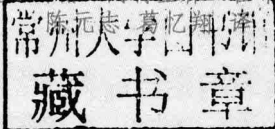 陈元志 葛忆翔 译
常州大学图书馆
藏书章